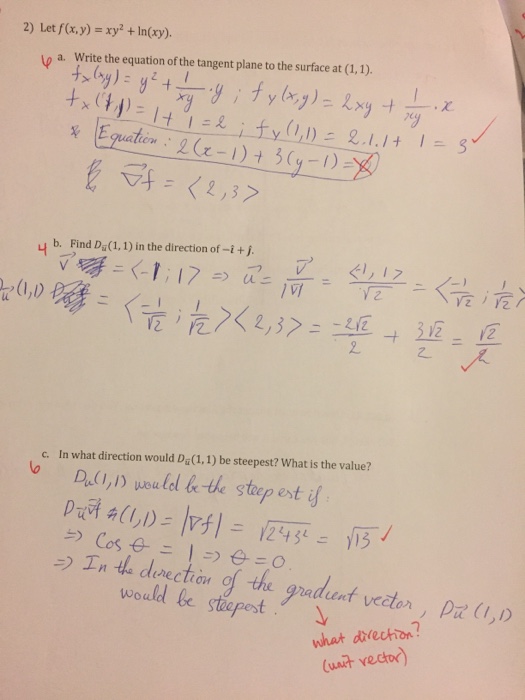 2) Let f(x,y) = xy² + ln(xy).
6 a. Write the equation of the tangent plane to the surface at (1, 1).
fx(x,y) = y² + 1/xy · y ; fy(x,y) = 2xy + 1/xy · x
fx(1,1) = 1 + 1 = 2 ; fy(1,1) = 2.1.1 + 1 = 3 ✓
Equation : 2(x-1) + 3(y-1) =
∇f = <2,3>
4 b. Find Dᵤ(1, 1) in the direction of −i + j.
v = <-1;1> => u = v/|v| = <-1,1>/√2 = <-1/√2 ; 1/√2>
Du(1,1) = <-1/√2 ; 1/√2> <2,3> = -2√2/2 + 3√2/2 = √2/2 ✓
6 c. In what direction would Dᵤ(1, 1) be steepest? What is the value?
Du(1,1) would be the steepest if :
Du (1,1) = |∇f| = √2²+3² = √13 ✓
=> Cos θ = 1 => θ = 0.
=> In the direction of the gradient vector, Du (1,1)
would be steepest.
what direction?
(unit vector)